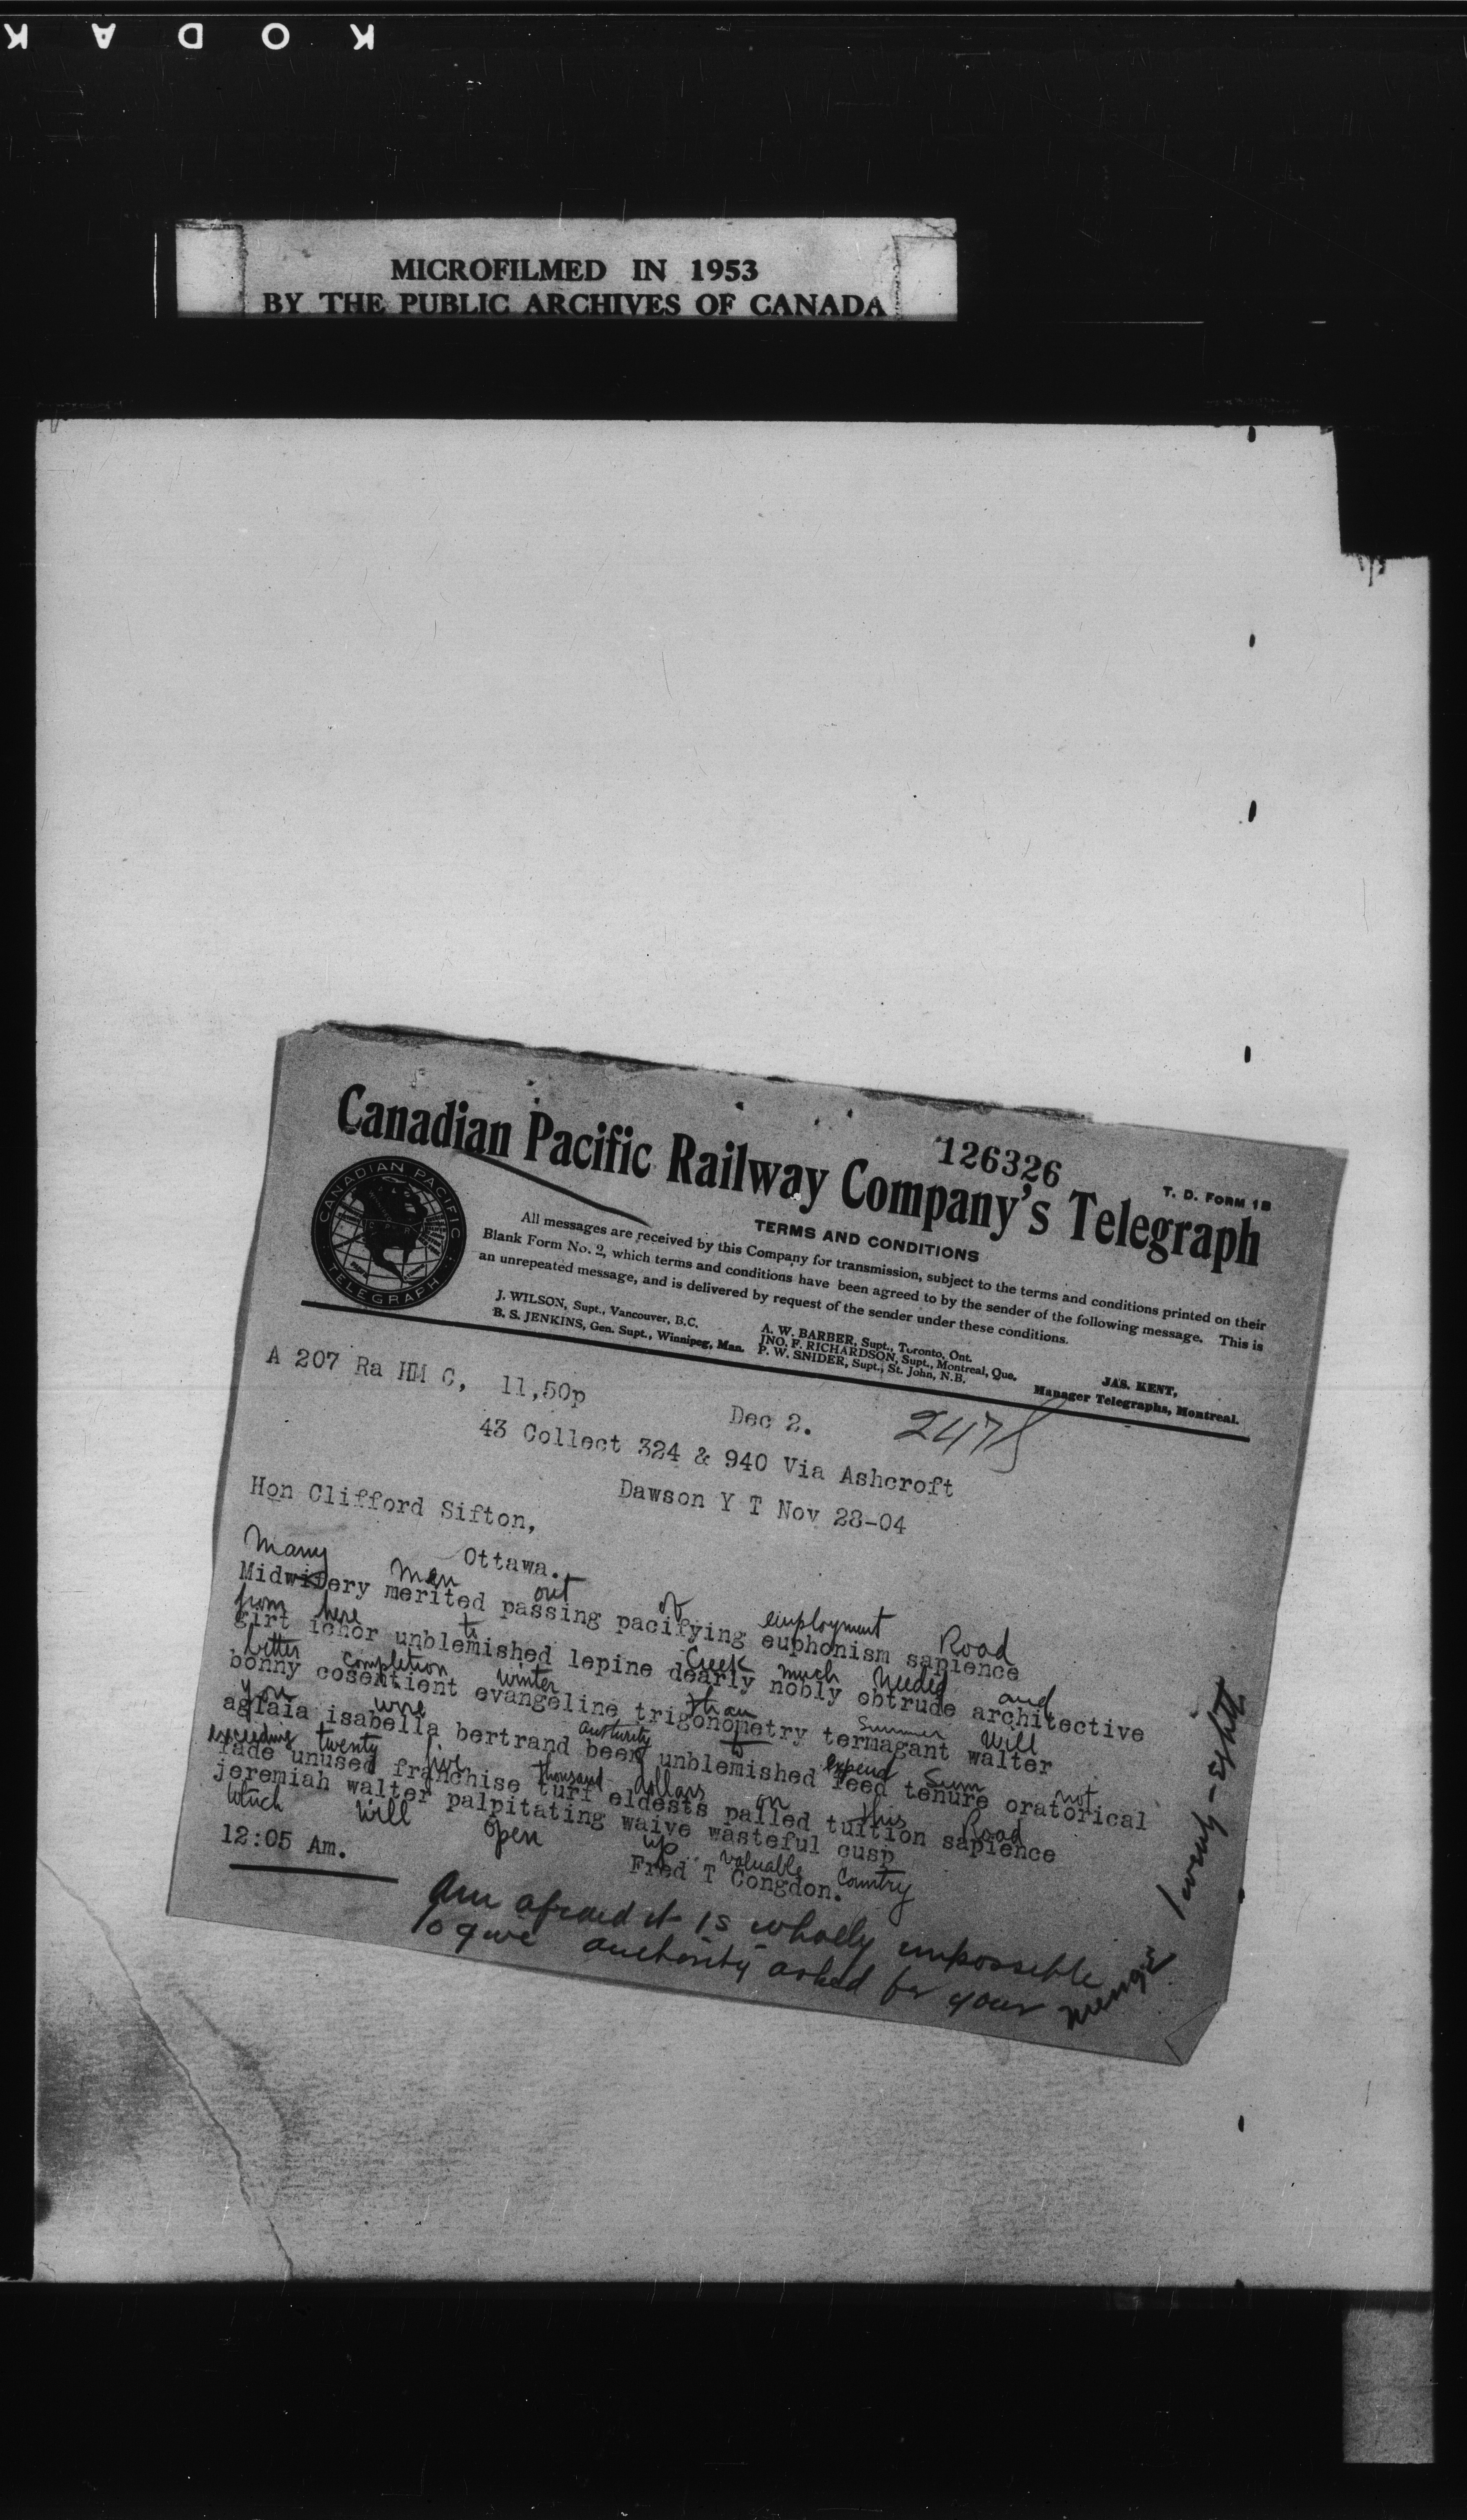 K O D A K
MICROFILMED IN 1953
BY THE PUBLIC ARCHIVES OF CANADA
126326
T. D. FORM 1B
Canadian Pacific Railway Company's Telegraph
CANADIAN PACIFIC TELEGRAPH
TERMS AND CONDITIONS
All messages are received by this Company for transmission, subject to the terms and conditions printed on their
Blank Form No. 2, which terms and conditions have been agreed to by the sender of the following message. This is
an unrepeated message, and is delivered by request of the sender under these conditions.
J. WILSON, Supt., Vancouver, B.C.
B. S. JENKINS, Gen. Supt., Winnipeg, Man.
A. W. BARBER, Supt., Toronto, Ont.
JNO. F. RICHARDSON, Supt., Montreal, Que.
P. W. SNIDER, Supt., St. John, N.B.
JAS. KENT,
Manager Telegraphs, Montreal.
A 207 Ra HM C, 11,50p Dec 2.
43 Collect 324 & 940 Via Ashcroft
Dawson Y T Nov 28-04
Hon Clifford Sifton,
Ottawa.
Many Men out of employment Road
Midwifery merited passing pacifying euphonism sapience
from here to Creek much needed and
girt ichor unblemished lepine dearly nobly obtrude architective
better completion winter than Summer will
bonny cosentient evangeline trigonometry termagant walter
you wire authority to expend Sum not
aglaia isabella bertrand been unblemished feed tenure oratorical
exceeding twenty five thousand dollars on this Road
fade unused franchise turf eldests palled tuition sapience
which will open up valuable Country
jeremiah walter palpitating waive wasteful cusp
Fred T Congdon.
12:05 Am.
Am afraid it is wholly impossible
to give authority asked for your
twenty-eight